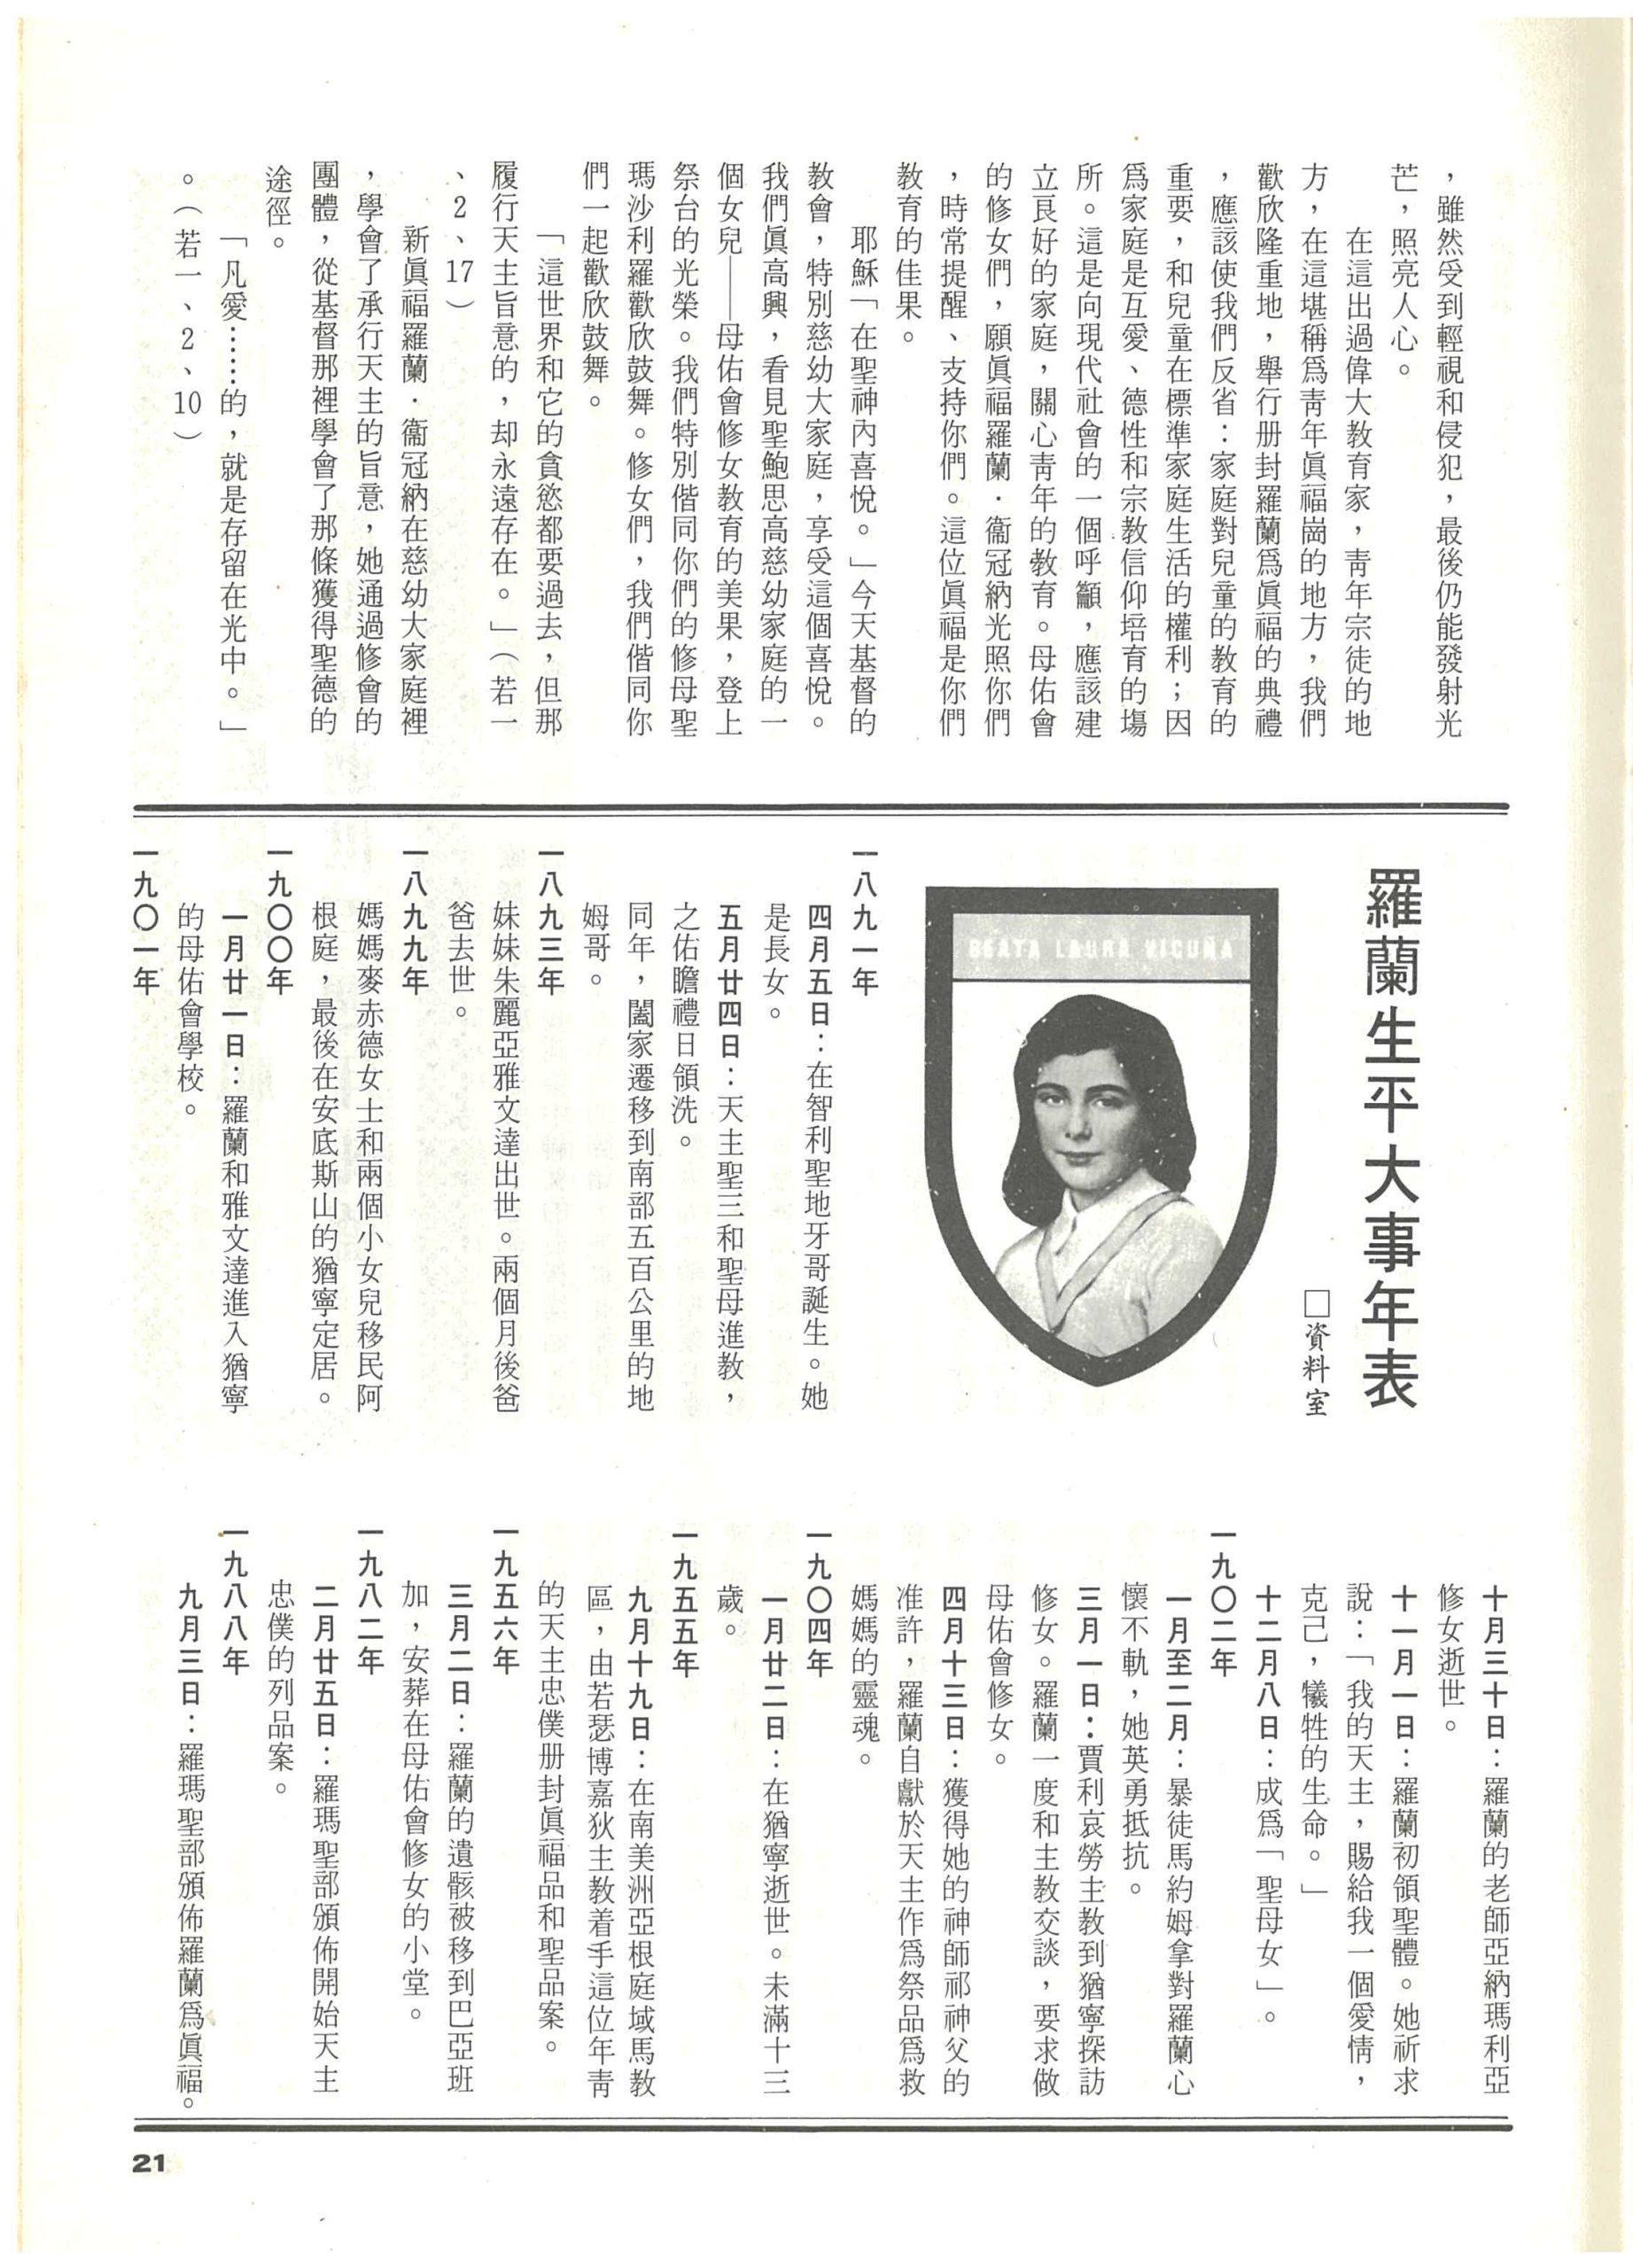 ，雖然受到輕視和侵犯，最後仍能發射光
芒，照亮人心。
在這出過偉大教育家，靑年宗徒的地
方，在這堪稱爲靑年眞福崗的地方，我們
歡欣隆重地，舉行册封羅蘭爲眞福的典禮
，應該使我們反省：家庭對兒童的教育的
重要，和兒童在標準家庭生活的權利；因
爲家庭是互愛、德性和宗教信仰培育的塲
所。這是向現代社會的一個呼籲，應該建
立良好的家庭，關心靑年的教育。母佑會
的修女們，願眞福羅蘭．衞冠納光照你們
，時常提醒、支持你們。這位眞福是你們
教育的佳果。
耶穌「在聖神內喜悅。」今天基督的
教會，特別慈幼大家庭，享受這個喜悅。
我們眞高興，看見聖鮑思高慈幼家庭的一
個女兒——母佑會修女教育的美果，登上
祭台的光榮。我們特別偕同你們的修母聖
瑪沙利羅歡欣鼓舞。修女們，我們偕同你
們一起歡欣鼓舞。
「這世界和它的貪慾都要過去，但那
履行天主旨意的，却永遠存在。」（若一
、2、17）
新眞福羅蘭．衞冠納在慈幼大家庭裡
，學會了承行天主的旨意，她通過修會的
團體，從基督那裡學會了那條獲得聖德的
途徑。
「凡愛……的，就是存留在光中。」
。（若一、2、10）
羅蘭生平大事年表
□資料室
BEATA LAURA VICUÑA
一八九一年
四月五日：在智利聖地牙哥誕生。她
是長女。
五月廿四日：天主聖三和聖母進教，
之佑瞻禮日領洗。
同年，闔家遷移到南部五百公里的地
姆哥。
一八九三年
妹妹朱麗亞雅文達出世。兩個月後爸
爸去世。
一八九九年
媽媽麥赤德女士和兩個小女兒移民阿
根庭，最後在安底斯山的猶寧定居。
一九〇〇年
一月廿一日：羅蘭和雅文達進入猶寧
的母佑會學校。
一九〇一年
十月三十日：羅蘭的老師亞納瑪利亞
修女逝世。
十一月一日：羅蘭初領聖體。她祈求
說：「我的天主，賜給我一個愛情，
克己，犧牲的生命。」
十二月八日：成爲「聖母女」。
一九〇二年
一月至二月：暴徒馬約姆拿對羅蘭心
懷不軌，她英勇抵抗。
三月一日：賈利哀勞主教到猶寧探訪
修女。羅蘭一度和主教交談，要求做
母佑會修女。
四月十三日：獲得她的神師祁神父的
准許，羅蘭自獻於天主作爲祭品爲救
媽媽的靈魂。
一九〇四年
一月廿二日：在猶寧逝世。未滿十三
歲。
一九五五年
九月十九日：在南美洲亞根庭域馬教
區，由若瑟博嘉狄主教着手這位年靑
的天主忠僕册封眞福品和聖品案。
一九五六年
三月二日：羅蘭的遺骸被移到巴亞班
加，安葬在母佑會修女的小堂。
一九八二年
二月廿五日：羅瑪聖部頒佈開始天主
忠僕的列品案。
一九八八年
九月三日：羅瑪聖部頒佈羅蘭爲眞福。
21